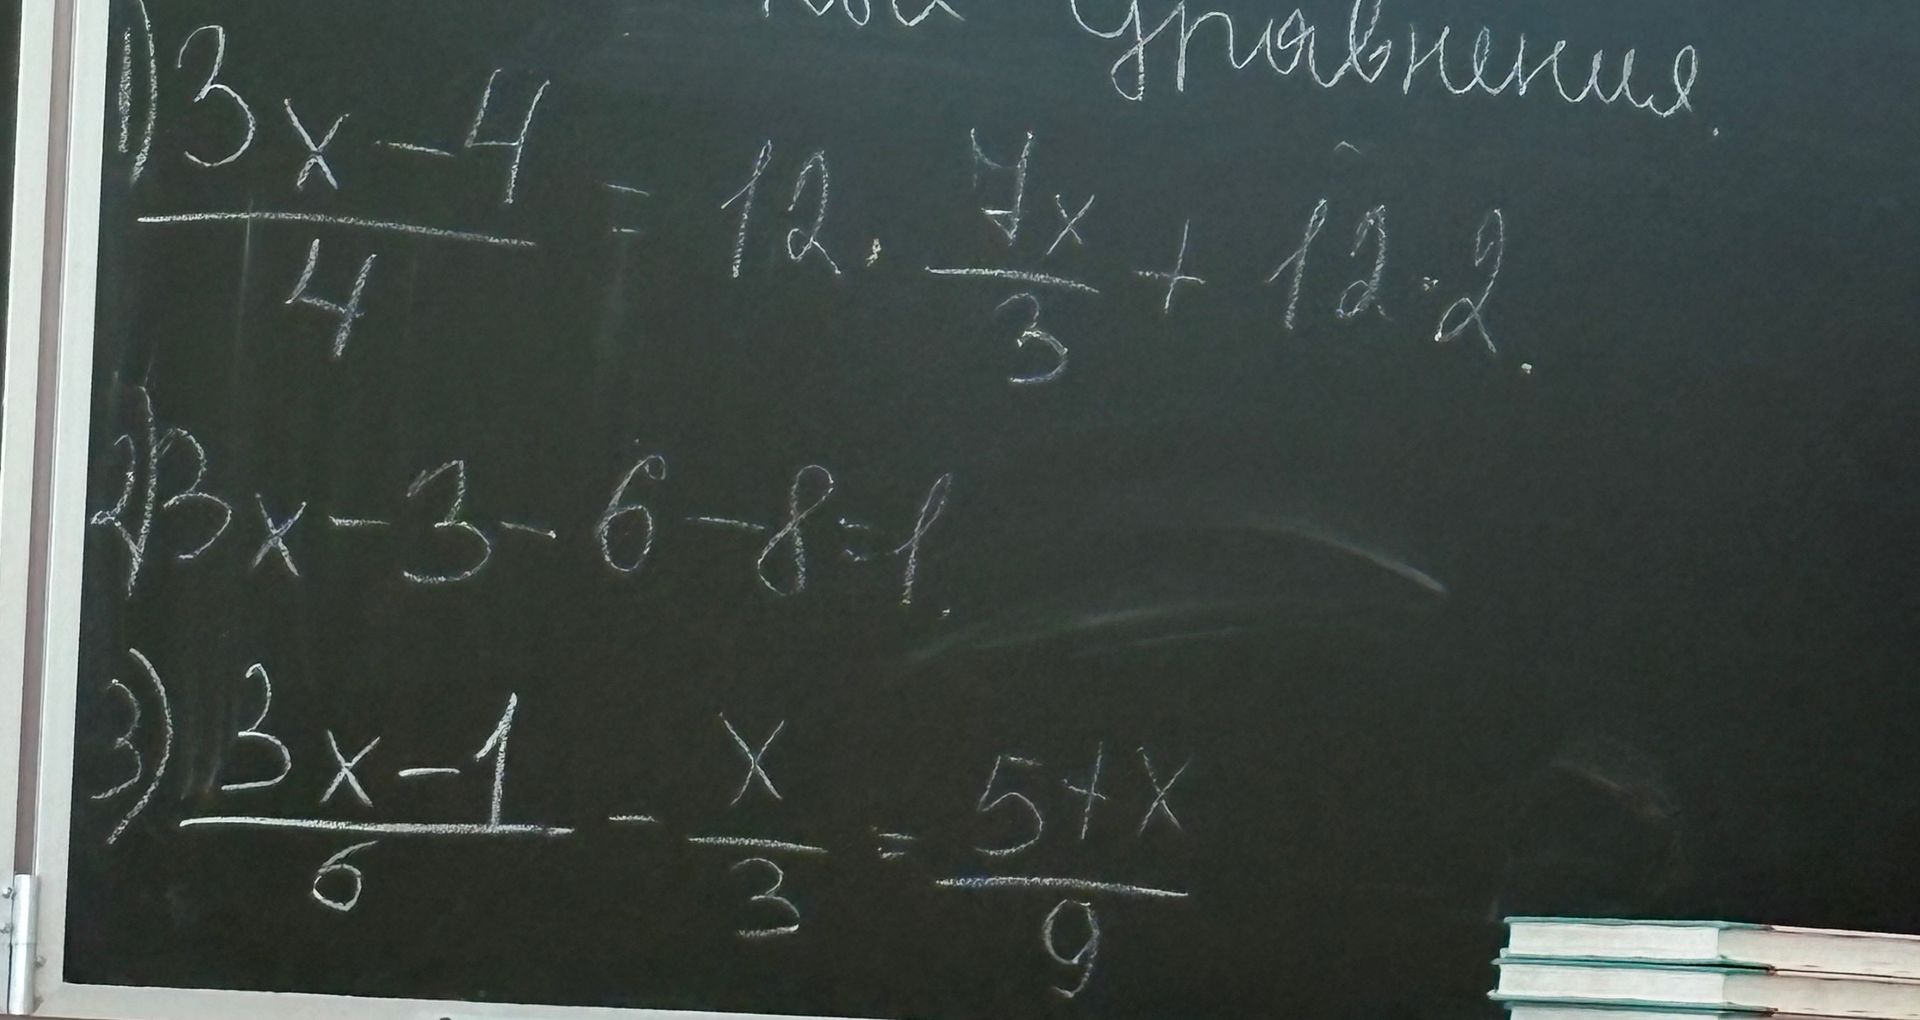 Уравнения.
1) \frac{3x-4}{4} = 12 \cdot \frac{7x}{3} + 12 \cdot 2.
2) 3x-3-6-8=1.
3) \frac{3x-1}{6} - \frac{x}{3} = \frac{5+x}{9}